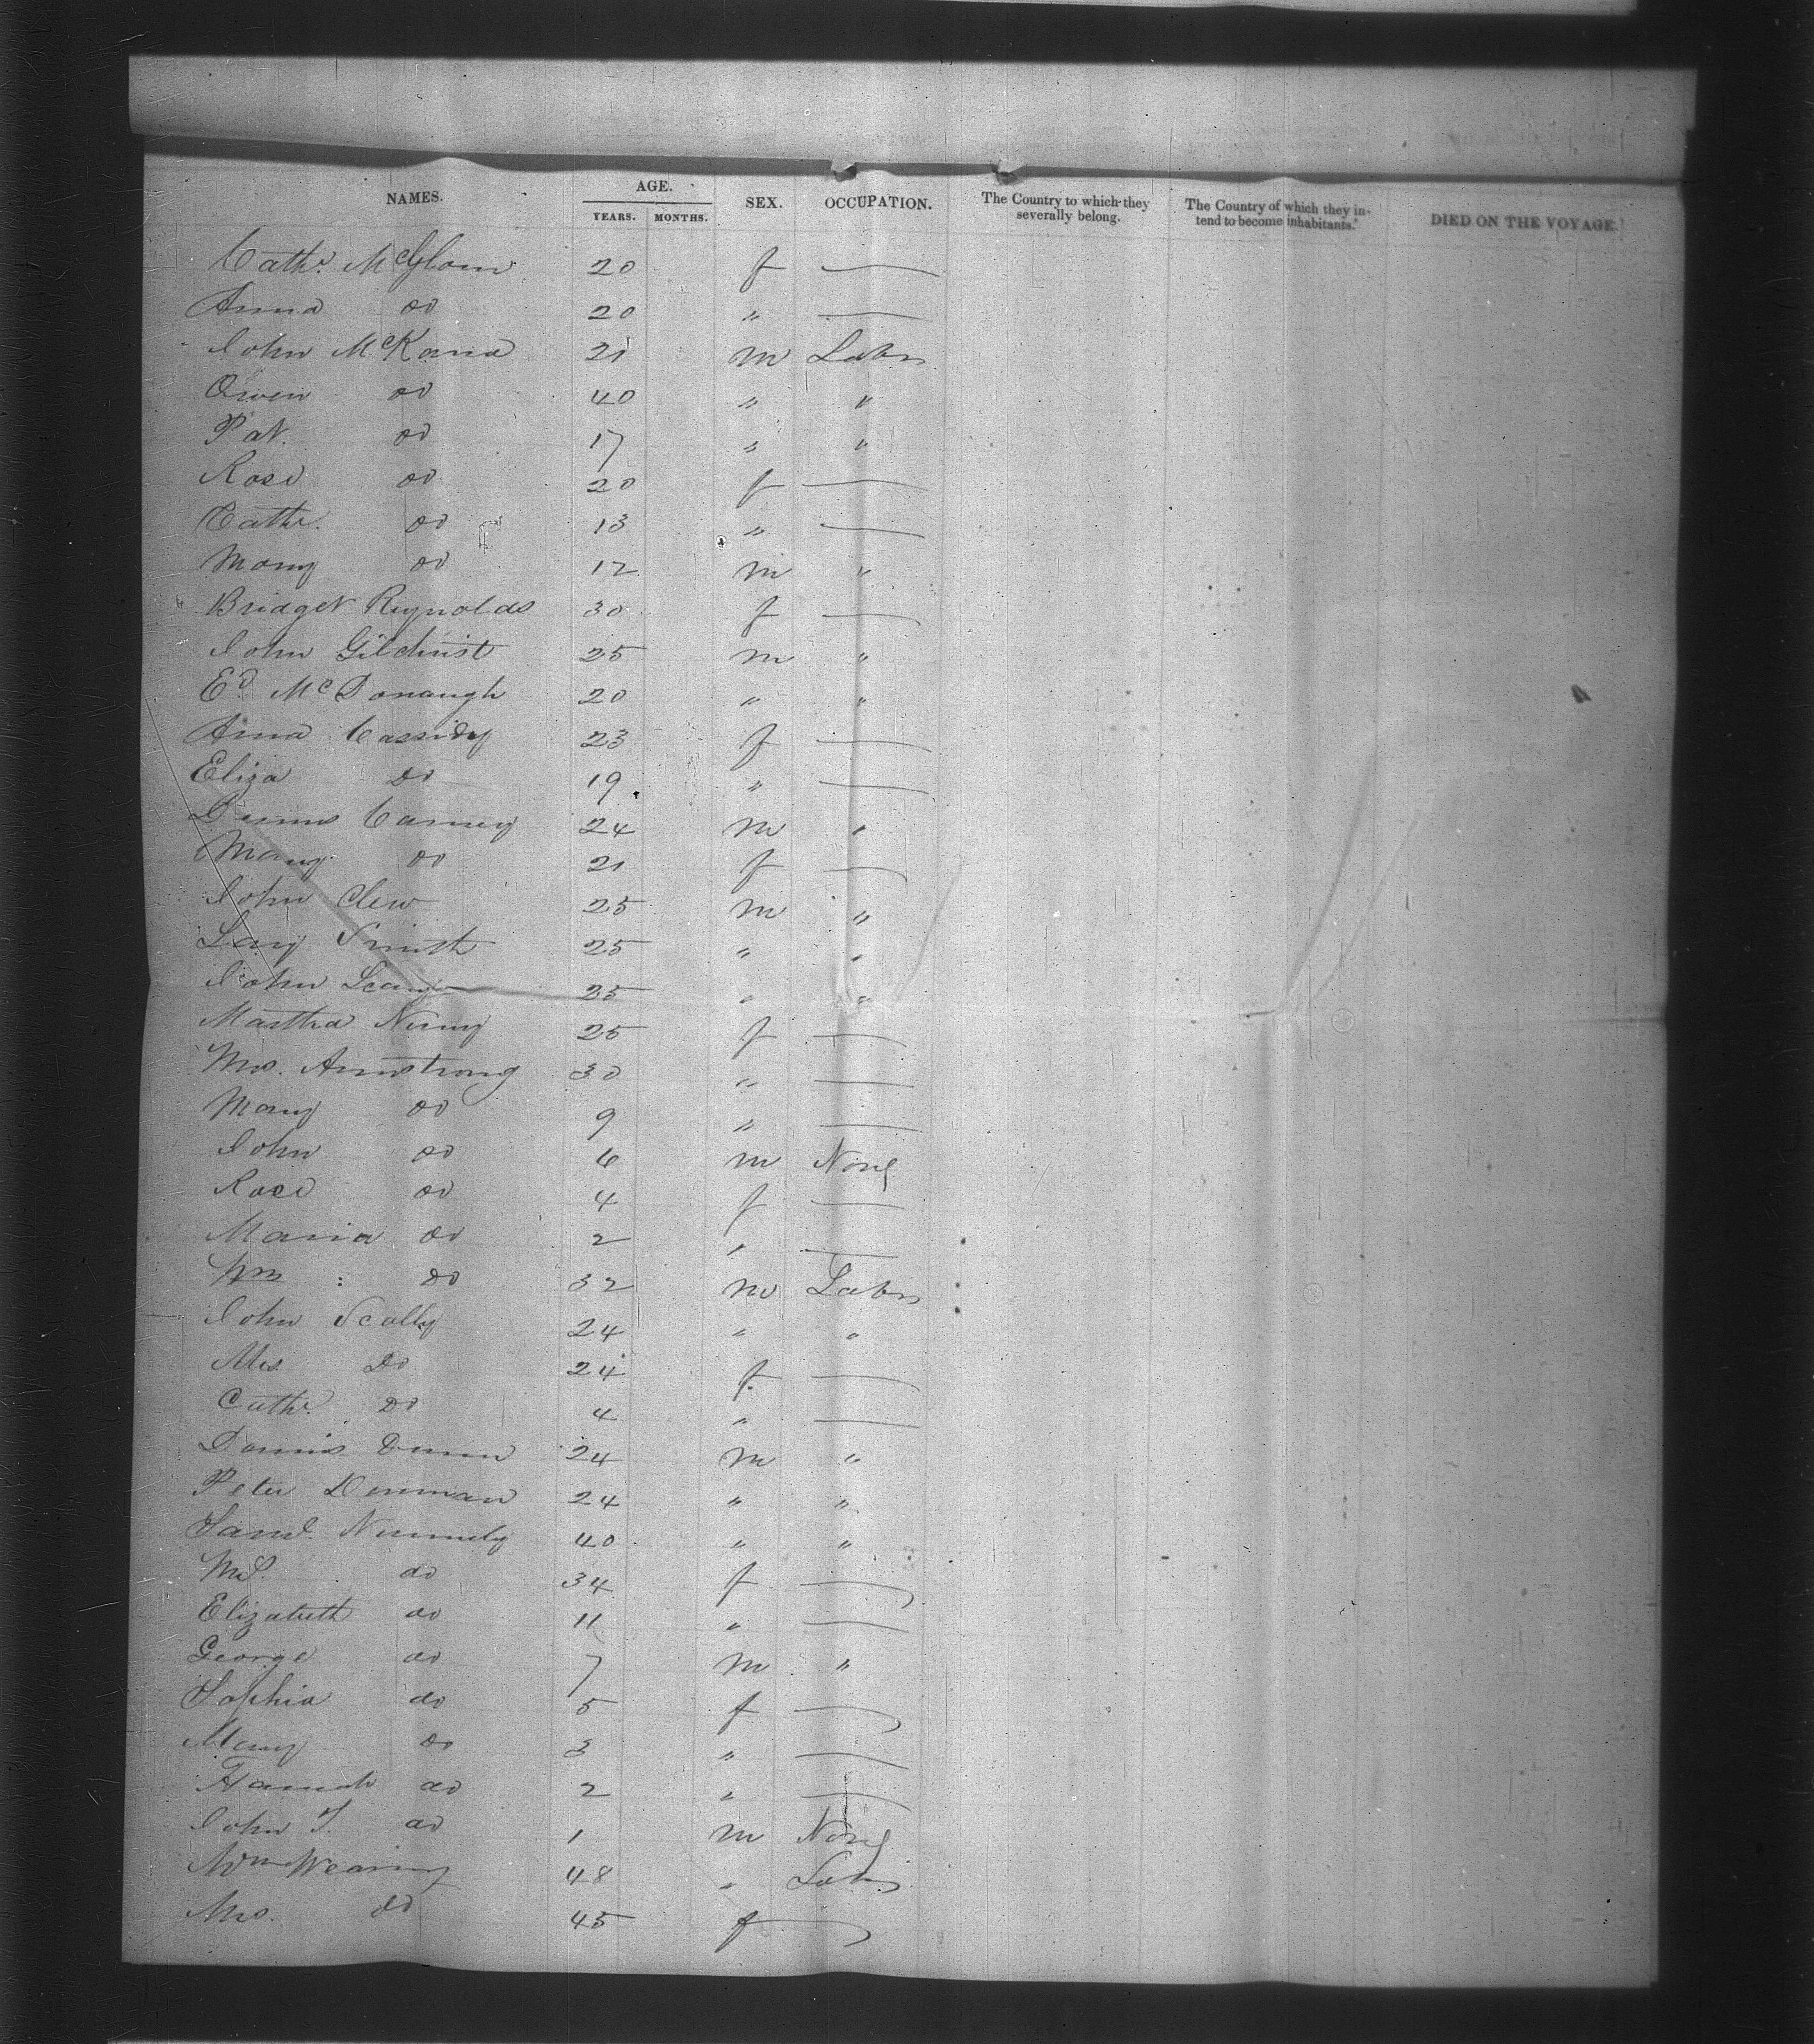 NAMES. AGE. YEARS. MONTHS. SEX. OCCUPATION. The Country to which they severally belong. The Country of which they intend to become inhabitants. DIED ON THE VOYAGE.
Cathe. McGloin 20 f —
Anna do 20 " —
John McKana 21 m Labr
Owen do 40 " "
Pat. do 17 " "
Rose do 20 f —
Cathe. do 13 " —
Mary do 12 m "
Bridget Reynolds 30 f —
John Gilchrist 25 m "
Ed McDonaugh 20 " "
Anna Cassidy 23 f —
Eliza Do 19 " —
Dennis Carney 24 m "
Mary do 21 f —
John Clew 25 m "
Smith 25 " "
John 25 " "
Martha 25 f —
Mrs. Armstrong 30 " —
Mary do 9 " —
John do 6 m None
Rose do 4 f —
Maria do 2 " —
Wm : do 32 m Labr
John Scally 24 " "
Mrs Do 24 f —
Cathe. Do 4 " —
Dennis Dunn 24 m "
Peter 24 " "
Saml. Nunnely 40 " "
Ms. do 34 f —
Elizabeth do 11 " —
George do 7 m "
Sophia do 5 f —
Mary do 3 " —
Hannah do 2 " —
John T. do 1 m None
Wm Wearing 48 " Labr
Mrs. do 45 f —